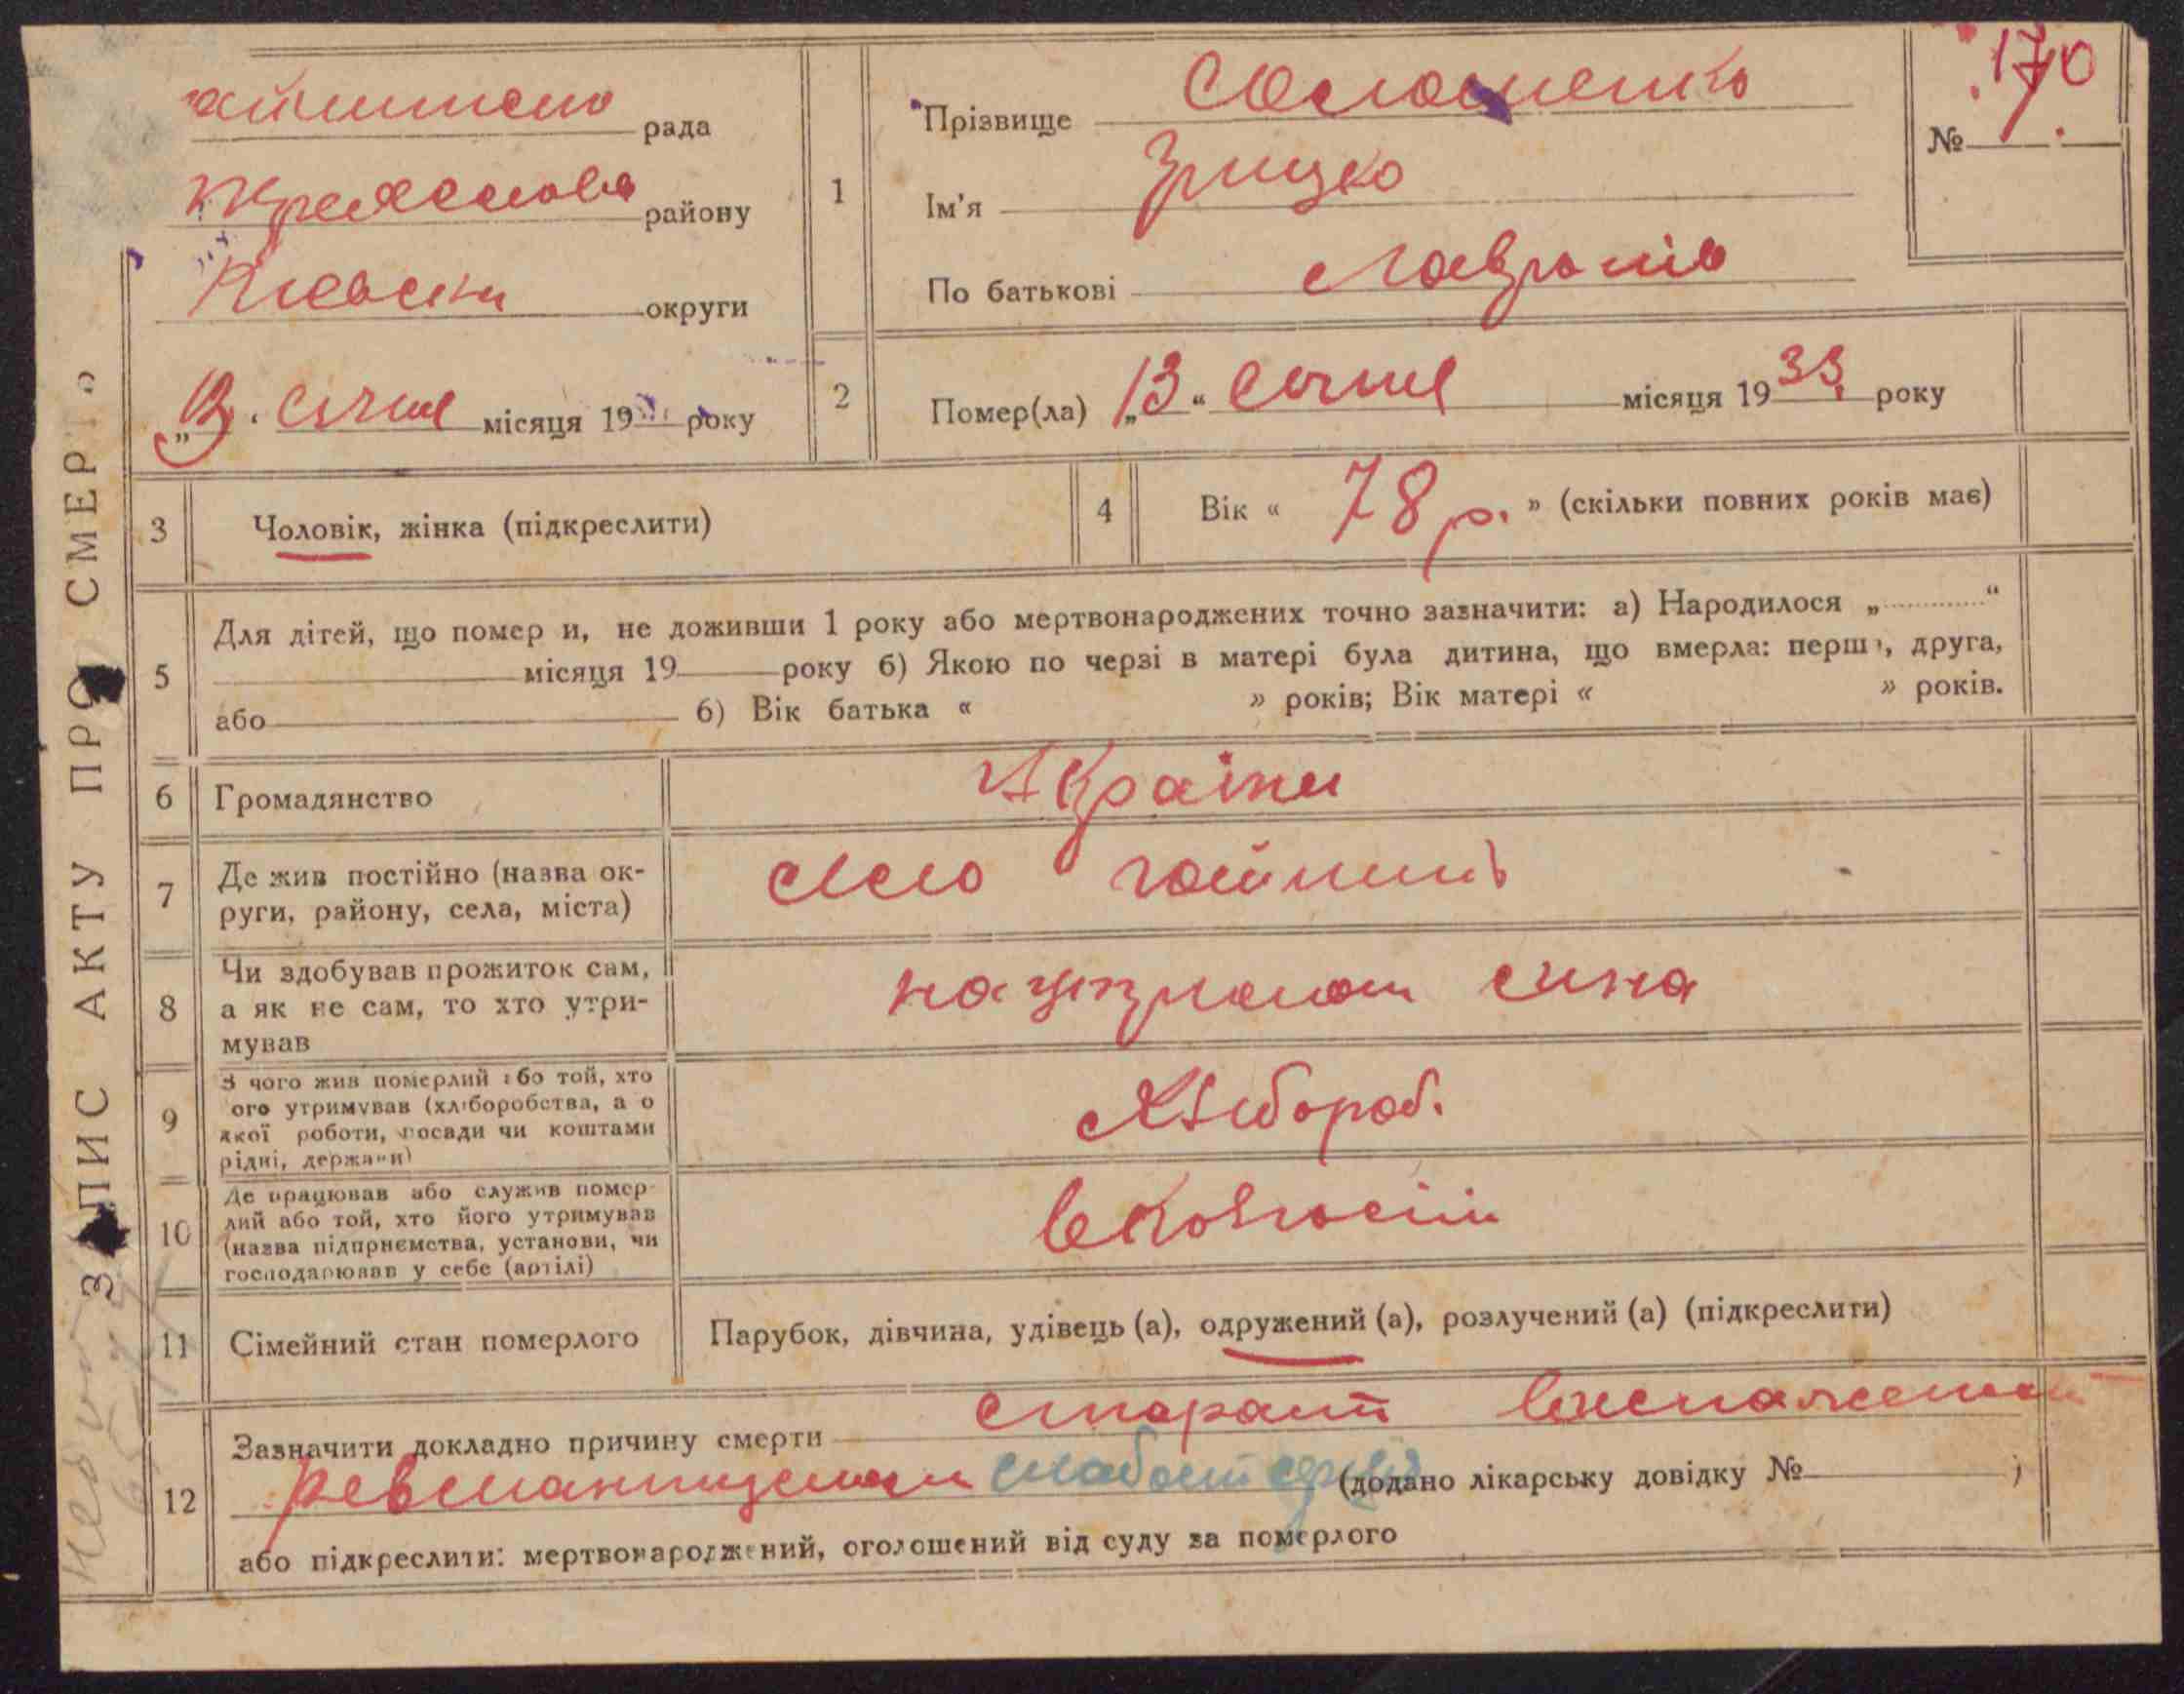 ЗАПИС АКТУ ПРО СМЕРТЬ
рада
району
округи
„13“ Січня місяця 19 року
1
Прізвище Соломенко
Ім'я Грицко
По батькові Лаврінів
№ 170
2
Помер(ла) „13“ Січня місяця 1933 року
3
Чоловік, жінка (підкреслити)
4
Вік « 78 р. » (скільки повних років має)
5
Для дітей, що помер и, не доживши 1 року або мертвонароджених точно зазначити: а) Народилося „ “
місяця 19 року б) Якою по черзі в матері була дитина, що вмерла: перша, друга,
або б) Вік батька « » років; Вік матері « » років.
6
Громадянство
України
7
Де жив постійно (назва ок-
руги, району, села, міста)
село
8
Чи здобував прожиток сам,
а як не сам, то хто утри-
мував
на утриманні сина
9
З чого жив померлий або той, хто
ого утримував (хліборобства, а о
якої роботи, посади чи коштами
рідні, держави)
Хлібороб.
10
Де працював або служив помер-
лий або той, хто його утримував
(назва підприємства, установи, чи
господарював у себе (артілі)
в колгоспі
11
Сімейний стан померлого
Парубок, дівчина, удівець (а), одружений (а), розлучений (а) (підкреслити)
12
Зазначити докладно причину смерти
слабост серця (додано лікарську довідку № )
або підкреслити: мертвонароджений, оголошений від суду за померлого